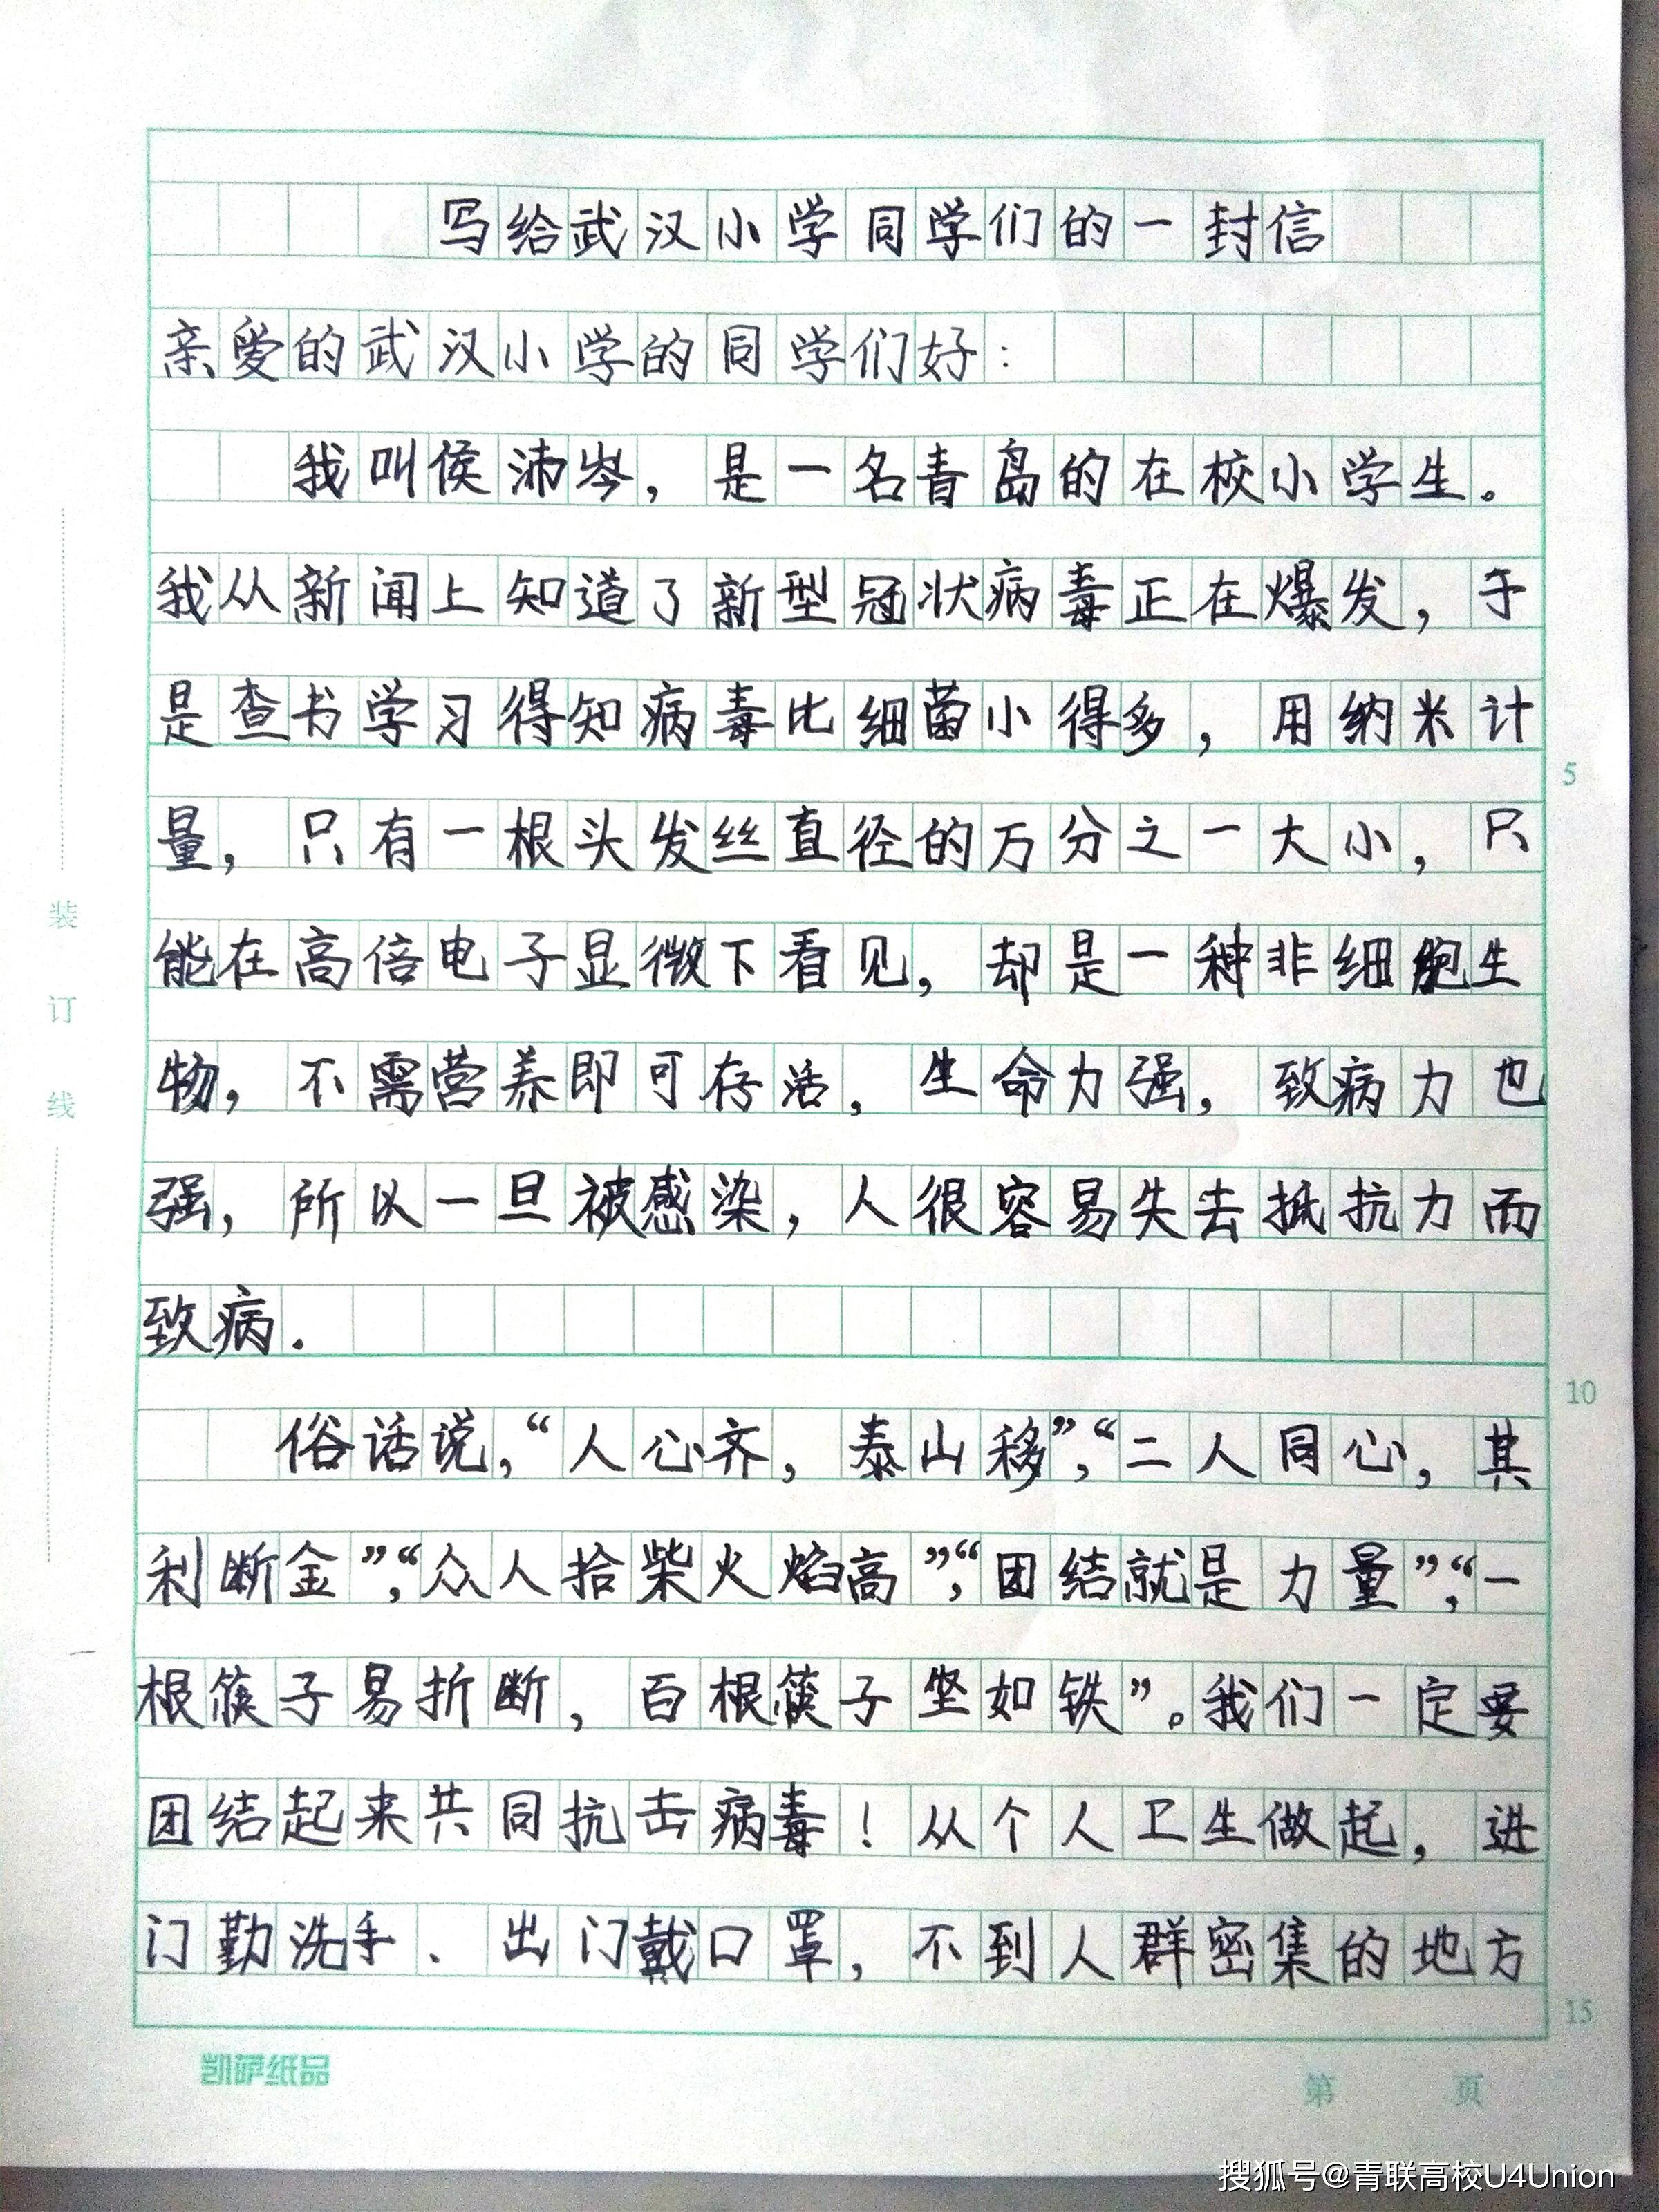 写给武汉小学同学们的一封信
亲爱的武汉小学的同学们好：
我叫侯沛岑，是一名青岛的在校小学生。
我从新闻上知道了新型冠状病毒正在爆发，于
是查书学习得知病毒比细菌小得多，用纳米计
5
量，只有一根头发丝直径的万分之一大小，只
能在高倍电子显微下看见，却是一种非细胞生
物，不需营养即可存活，生命力强，致病力也
强，所以一旦被感染，人很容易失去抵抗力而
致病.
10
俗话说，“人心齐，泰山移”，“二人同心，其
利断金”，“众人拾柴火焰高”，“团结就是力量”，“一
根筷子易折断，百根筷子坚如铁”。我们一定要
团结起来共同抗击病毒！从个人卫生做起，进
门勤洗手、出门戴口罩，不到人群密集的地方
15
装
订
线
凯萨纸品
第 页
搜狐号@青联高校U4Union